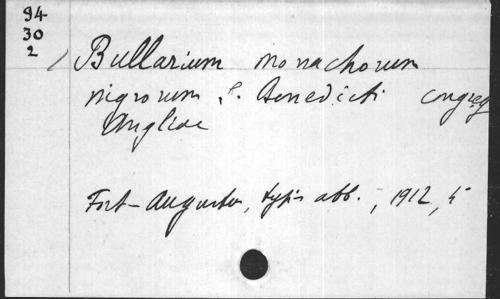 94
30
2
/ Bullarium monachorum
nigrorum S. Benedicti congreg
Angliae
Fort-Augustus, typis abb., 1912, 4°